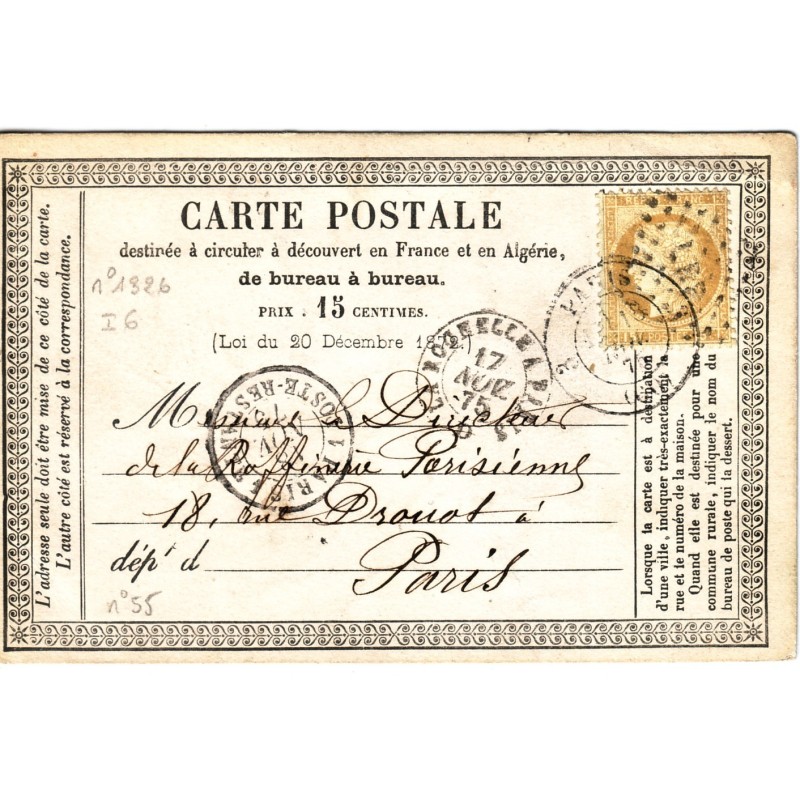 CARTE POSTALE
destinée à circuler à découvert en France et en Algérie,
de bureau à bureau.
PRIX : 15 CENTIMES.
(Loi du 20 Décembre 1872.)
L'adresse seule doit être mise de ce côté de la carte.
L'autre côté est réservé à la correspondance.
n° 1326
I 6
17
NOV
75
PARIS
Monsieur le Directeur
de la Raffinerie Parisienne
18, rue Drouot à
dépt d
Paris
n° 55
Lorsque la carte est à destination
d'une ville, indiquer très-exactement la
rue et le numéro de la maison.
Quand elle est destinée pour une
commune rurale, indiquer le nom du
bureau de poste qui la dessert.